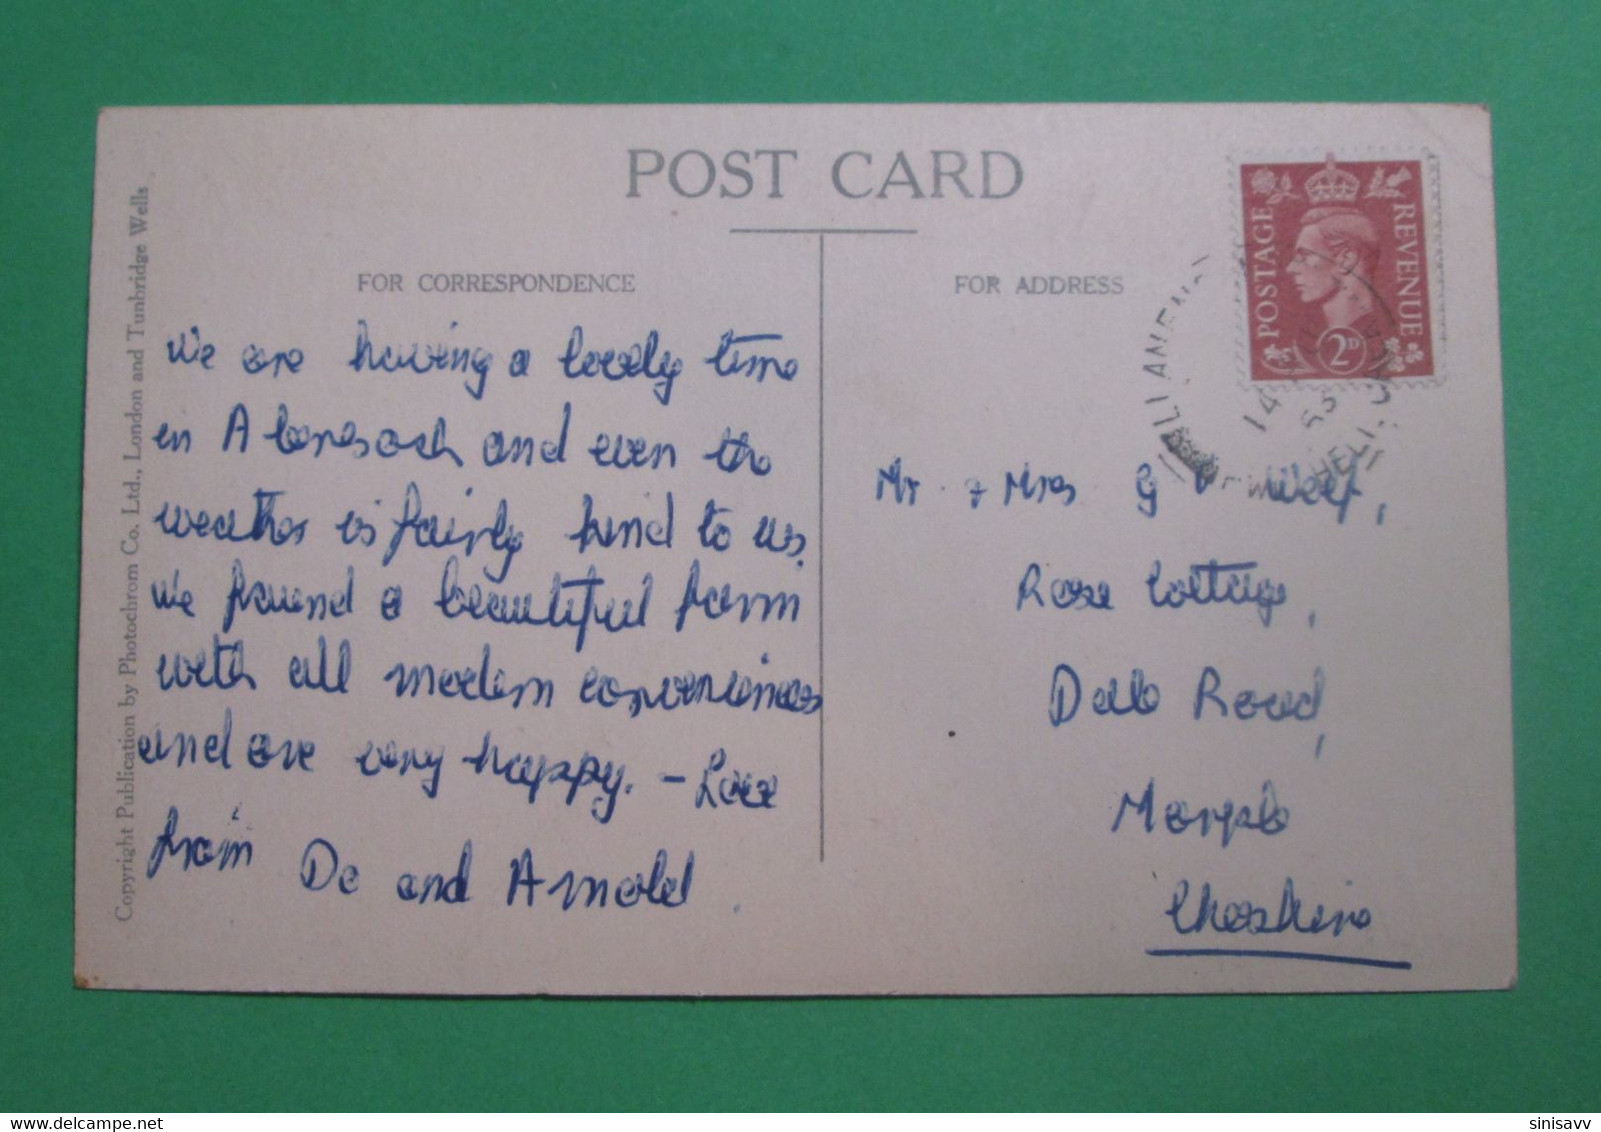 POST CARD
FOR CORRESPONDENCE
We are having a lovely time
in Abersoch and even the
weather is fairly kind to us.
We found a beautiful farm
with all modern conveniences
and are very happy. - Love
from Do and Arnold.
FOR ADDRESS
POSTAGE
REVENUE
2D
LLANENGAN
14
53
Mr & Mrs G
Rose Cottage,
Dale Road,
Marple
Cheshire
Copyright Publication by Photochrom Co. Ltd., London and Tunbridge Wells
sinisavv